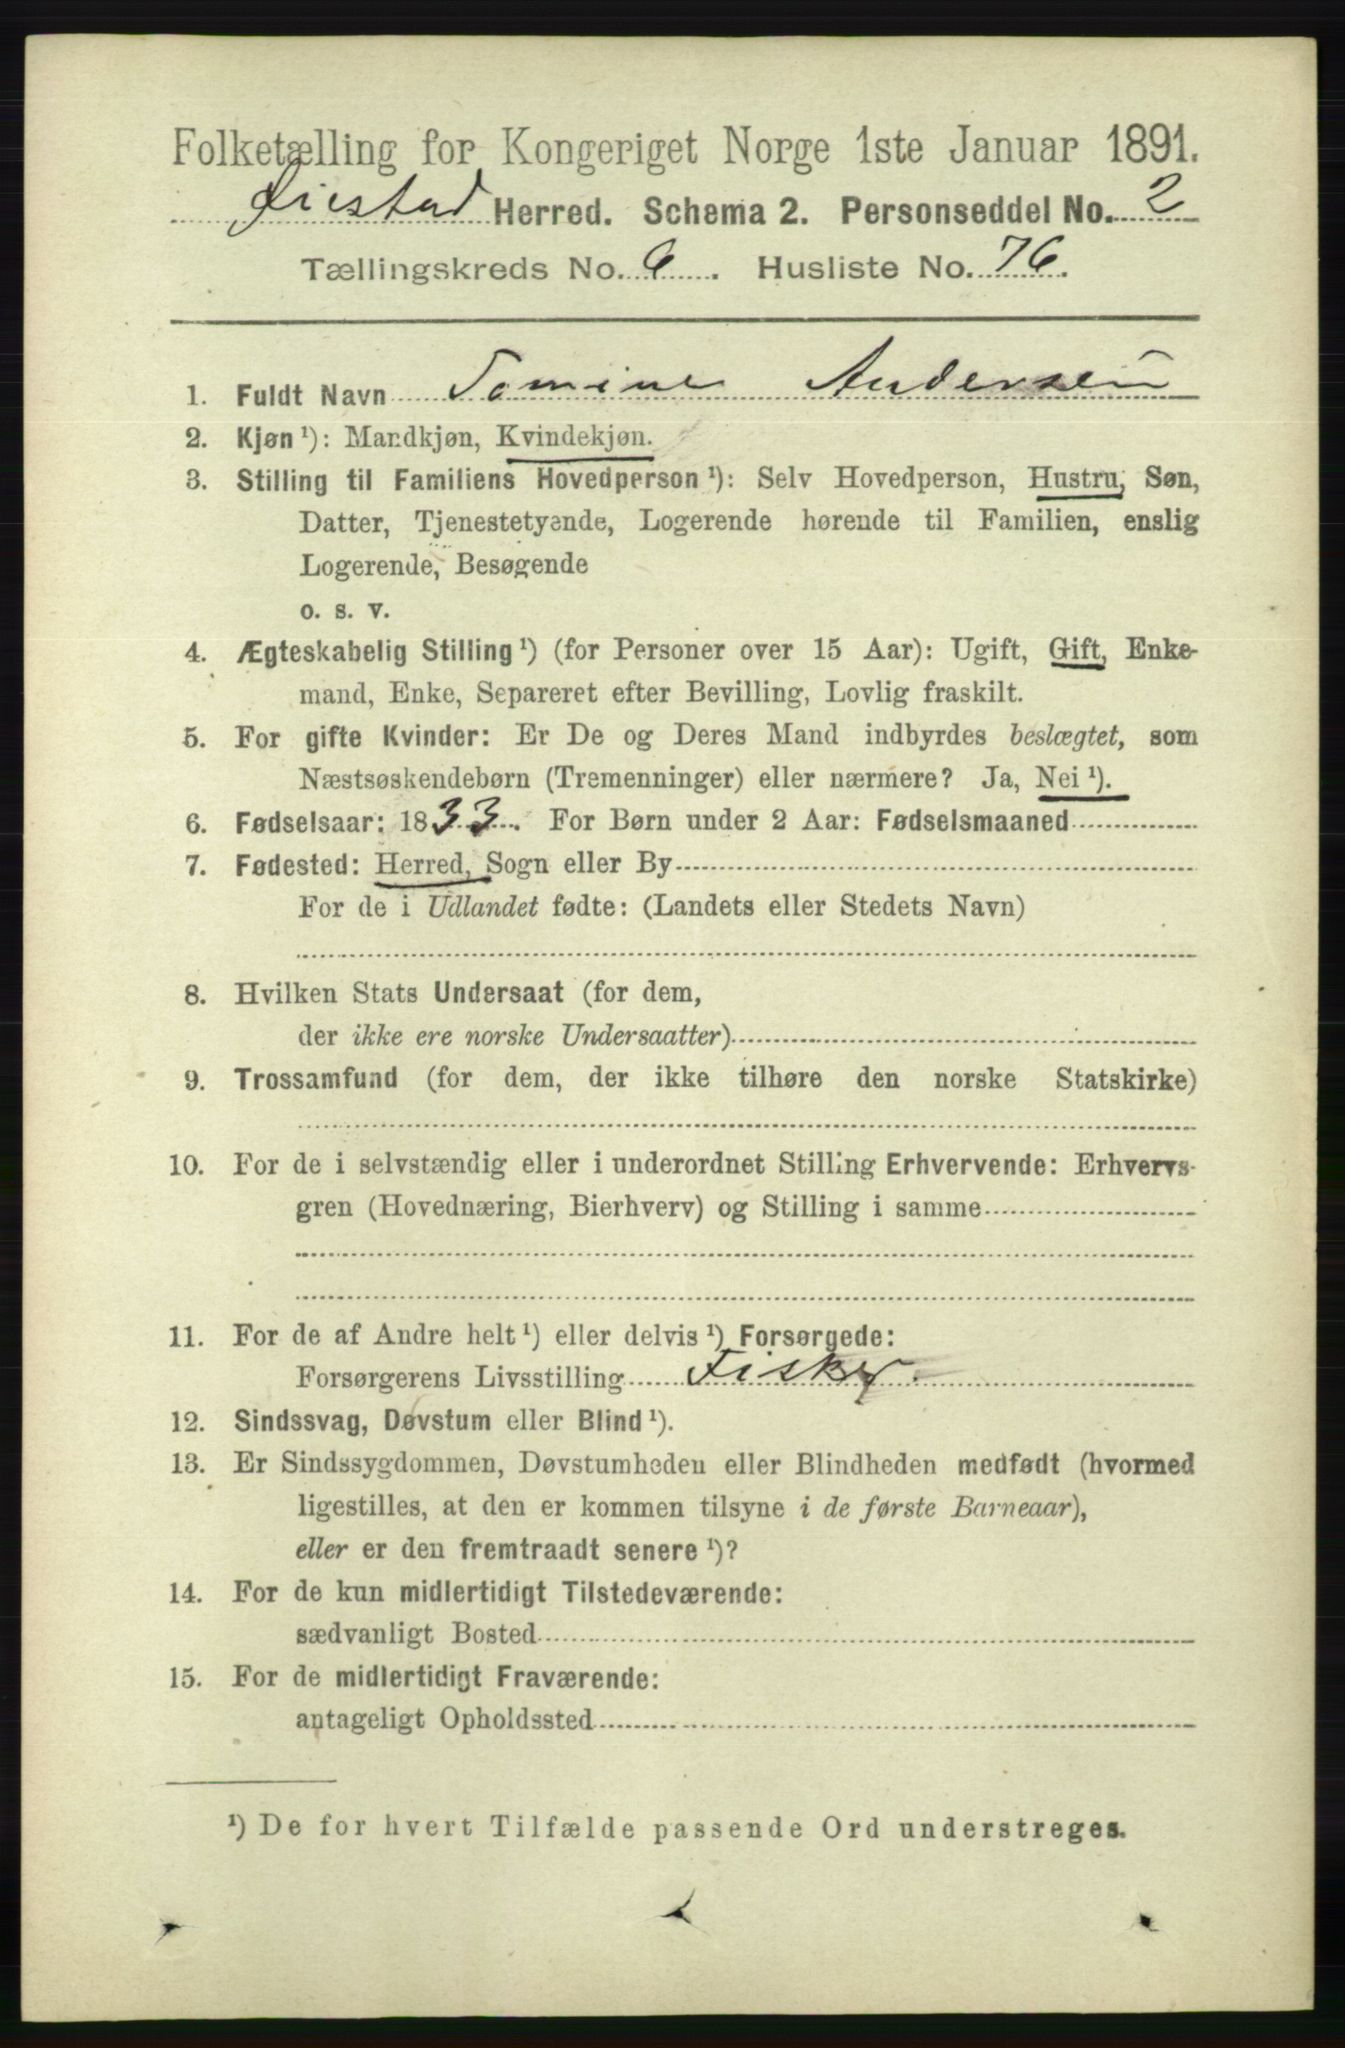 Folketælling for Kongeriget Norge 1ste Januar 1891.
Øiestad Herred. Schema 2. Personseddel No. 2
Tællingskreds No. 6. Husliste No. 76.
1. Fuldt Navn Tomine Andersen
2. Kjøn ¹): Mandkjøn, Kvindekjøn.
3. Stilling til Familiens Hovedperson ¹): Selv Hovedperson, Hustru, Søn,
Datter, Tjenestetyende, Logerende hørende til Familien, enslig
Logerende, Besøgende
o. s. v.
4. Ægteskabelig Stilling ¹) (for Personer over 15 Aar): Ugift, Gift, Enke-
mand, Enke, Separeret efter Bevilling, Lovlig fraskilt.
5. For gifte Kvinder: Er De og Deres Mand indbyrdes beslægtet, som
Næstsøskendebørn (Tremenninger) eller nærmere? Ja, Nei ¹).
6. Fødselsaar: 1833. For Børn under 2 Aar: Fødselsmaaned
7. Fødested: Herred, Sogn eller By
For de i Udlandet fødte: (Landets eller Stedets Navn)
8. Hvilken Stats Undersaat (for dem,
der ikke ere norske Undersaatter)
9. Trossamfund (for dem, der ikke tilhøre den norske Statskirke)
10. For de i selvstændig eller i underordnet Stilling Erhvervende: Erhvervs-
gren (Hovednæring, Bierhverv) og Stilling i samme
11. For de af Andre helt ¹) eller delvis ¹) Forsørgede:
Forsørgerens Livsstilling Fisker.
12. Sindssvag, Døvstum eller Blind ¹).
13. Er Sindssygdommen, Døvstumheden eller Blindheden medfødt (hvormed
ligestilles, at den er kommen tilsyne i de første Barneaar),
eller er den fremtraadt senere ¹)?
14. For de kun midlertidigt Tilstedeværende:
sædvanligt Bosted
15. For de midlertidigt Fraværende:
antageligt Opholdssted
¹) De for hvert Tilfælde passende Ord understreges.